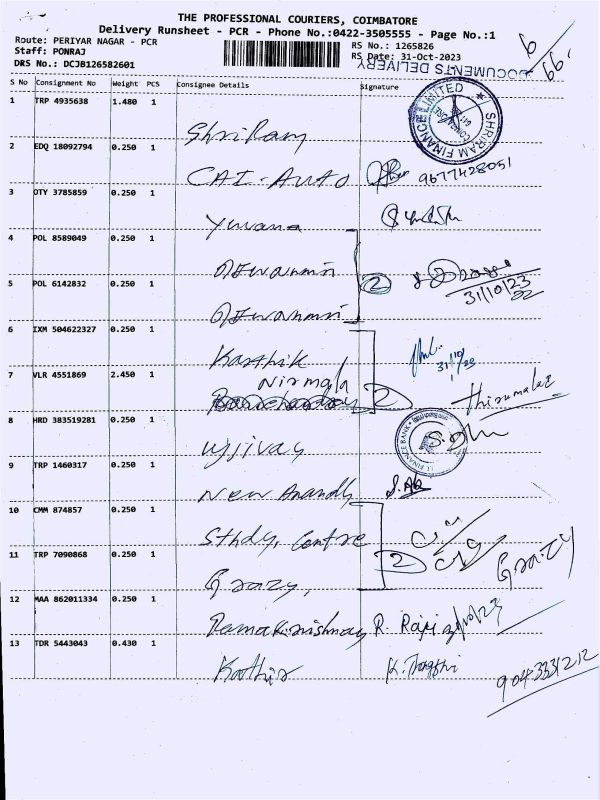 THE PROFESSIONAL COURIERS, COIMBATORE
Delivery Runsheet - PCR - Phone No.:0422-3505555 - Page No.:1
Route: PERIYAR NAGAR - PCR
RS No.: 1265826
Staff: PONRAJ
RS Date: 31-Oct-2023
DRS No.: DCJB126582601
DOCUMENTS DELIVERY
S No Consignment No Weight PCS Consignee Details Signature
1 TRP 4935638 1.480 1 Shriram
SHRIRAM FINANCE LIMITED
2 EDQ 18092794 0.250 1 CAI-Auto 9677428051
3 OTY 3785859 0.250 1 Yuvana
4 POL 8589049 0.250 1
2
31/10/23
5 POL 6142832 0.250 1
6 IXM 504622327 0.250 1 Karthik
31/10
7 VLR 4551869 2.450 1 Nirmala
2 thirumalai
8 HRD 383519281 0.250 1 Ujjivay
FINANCE BANK
9 TRP 1460317 0.250 1 New Anandh
10 CMM 874857 0.250 1 Study, Centre
2
11 TRP 7090868 0.250 1 Grazy,
Grazy
12 MAA 862011334 0.250 1 Ramakrishnay R. Raji
13 TDR 5443043 0.430 1 Kathir
9043331212